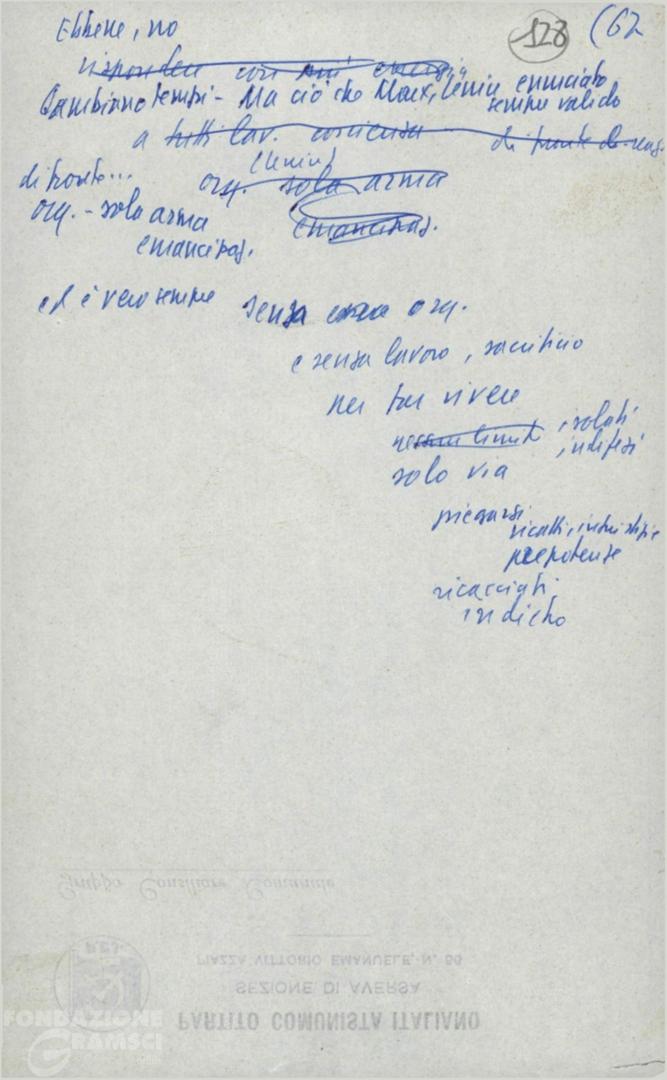 128 (62
Ebbene, no
rispondere con più energia
Cambiano tempi - Ma ciò che Marx, Lenin enunciato
sempre valido
a tutti lav. coscienza di fronte
(Lenin)
di fronte... org. sola arma
org. - sola arma emancipaz.
emancipaz.
ed è vero sempre senza org.
e senza lavoro, sacrificio
per far vivere
isolati
indifesi
solo via
piegarsi
ricatti, ingiustizie
prepotenze
ricacciati
indietro
Gruppo Consiliare Comunale
PIAZZA VITTORIO EMANUELE, N. 60
SEZIONE DI AVERSA
PARTITO COMUNISTA ITALIANO
P.C.I.
FONDAZIONE
GRAMSCI